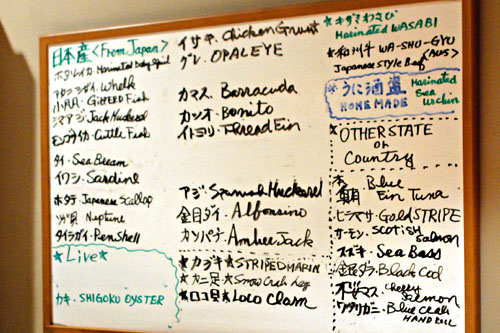 日本産〈From Japan〉
ホタルイカ・Marinated Baby Squid
Whelk
Fish
シマアジ Jack Mackerel
モンゴウイカ・Cuttle Fish
ダイ・Sea Bream
イワシ・Sardine
ホタテ Japanese Scallop
ツブ貝 Neptune
タイラガイ・Pen Shell
★Live★
カキ・SHIGOKU OYSTER
イサキ・Chicken Grunt
グレ・OPALEYE
カマス・Barracuda
カツオ・Bonito
イトヨリ・Threadfin
アジ・Spanish Mackerel
金目ダイ・Alfonsino
カンパチ・Amber Jack
★カジキ★STRIPED MARLIN
★カニ足★Snow Crab Leg
★ロコ貝★Loco Clam
★キザミわさび
Marinated WASABI
★和州牛 WA-SHU-GYU
Japanese Style Beef
(AUS)
うに酒盗
HOME MADE
Marinated
Sea
Urchin
OTHER STATE
or
Country
本鮪 Blue
Fin Tuna
ヒラマサ・Gold STRIPE
サーモン・SCOTISH
Salmon
スズキ・Sea Bass
銀ダラ・Black Cod
桜マス・Cherry
Salmon
ワタリガニ・Blue Crab
HAND ROLL